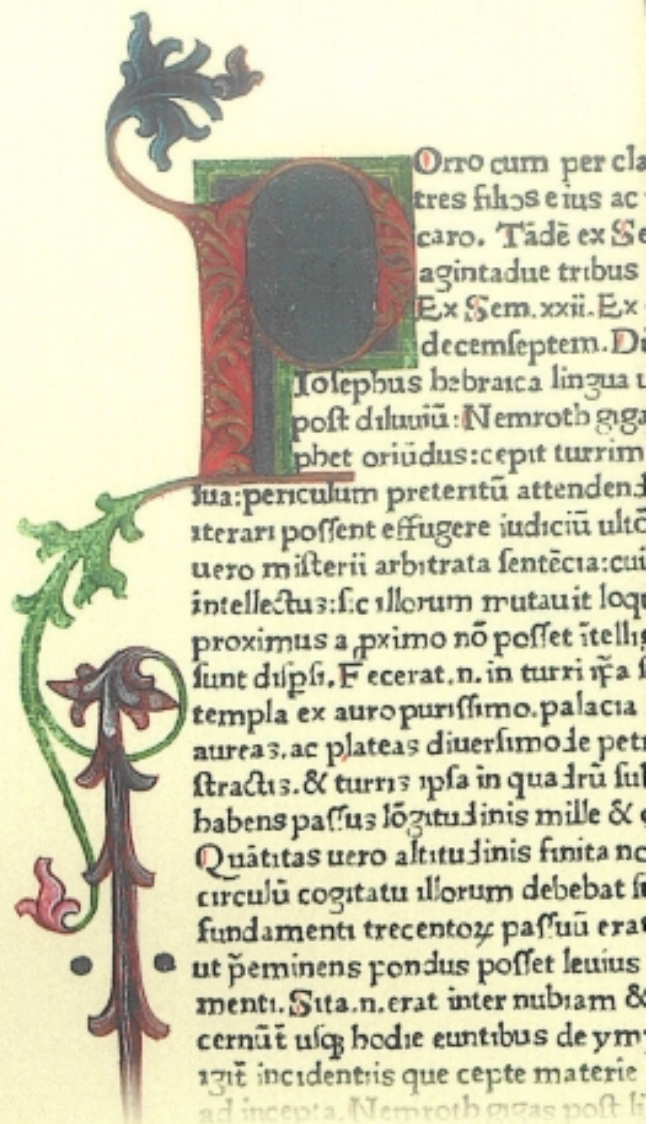 POrro cum per cla
tres filios eius ac
caro. Tādē ex Se
agintadue tribus
Ex Sem. xxii. Ex
decemſeptem. Di
Ioſephus hebraica lingua u
poſt diluuiū: Nemroth giga
phet oriūdus: cepit turrim
ſua: periculum preteritū attendend
iterari poſſent effugere iudiciū ultō
uero miſterii arbitrata ſentēcia: cui
intellectus: ſic illorum mutauit loqu
proximus a ꝓximo nō poſſet ītellig
ſunt diſpſi. Fecerat. n. in turri ip̄a ſ
templa ex auro puriſſimo. palacia
aureas. ac plateas diuerſimode petr
ſtractis. & turris ipſa in quadrū ſub
habens paſſus lōgitudinis mille &
Quātitas uero altitudinis finita no
circulū cogitatu illorum debebat ſu
fundamenti trecentoꝝ paſſuū erat
ut p̄eminens pondus poſſet leuius
menti. Sita. n. erat inter nubiam &
cernūt̄ uſqꝫ hodie euntibus de ym
igit̄ incidentiis que cepte materie
ad incepta. Nemroth gigas poſt li